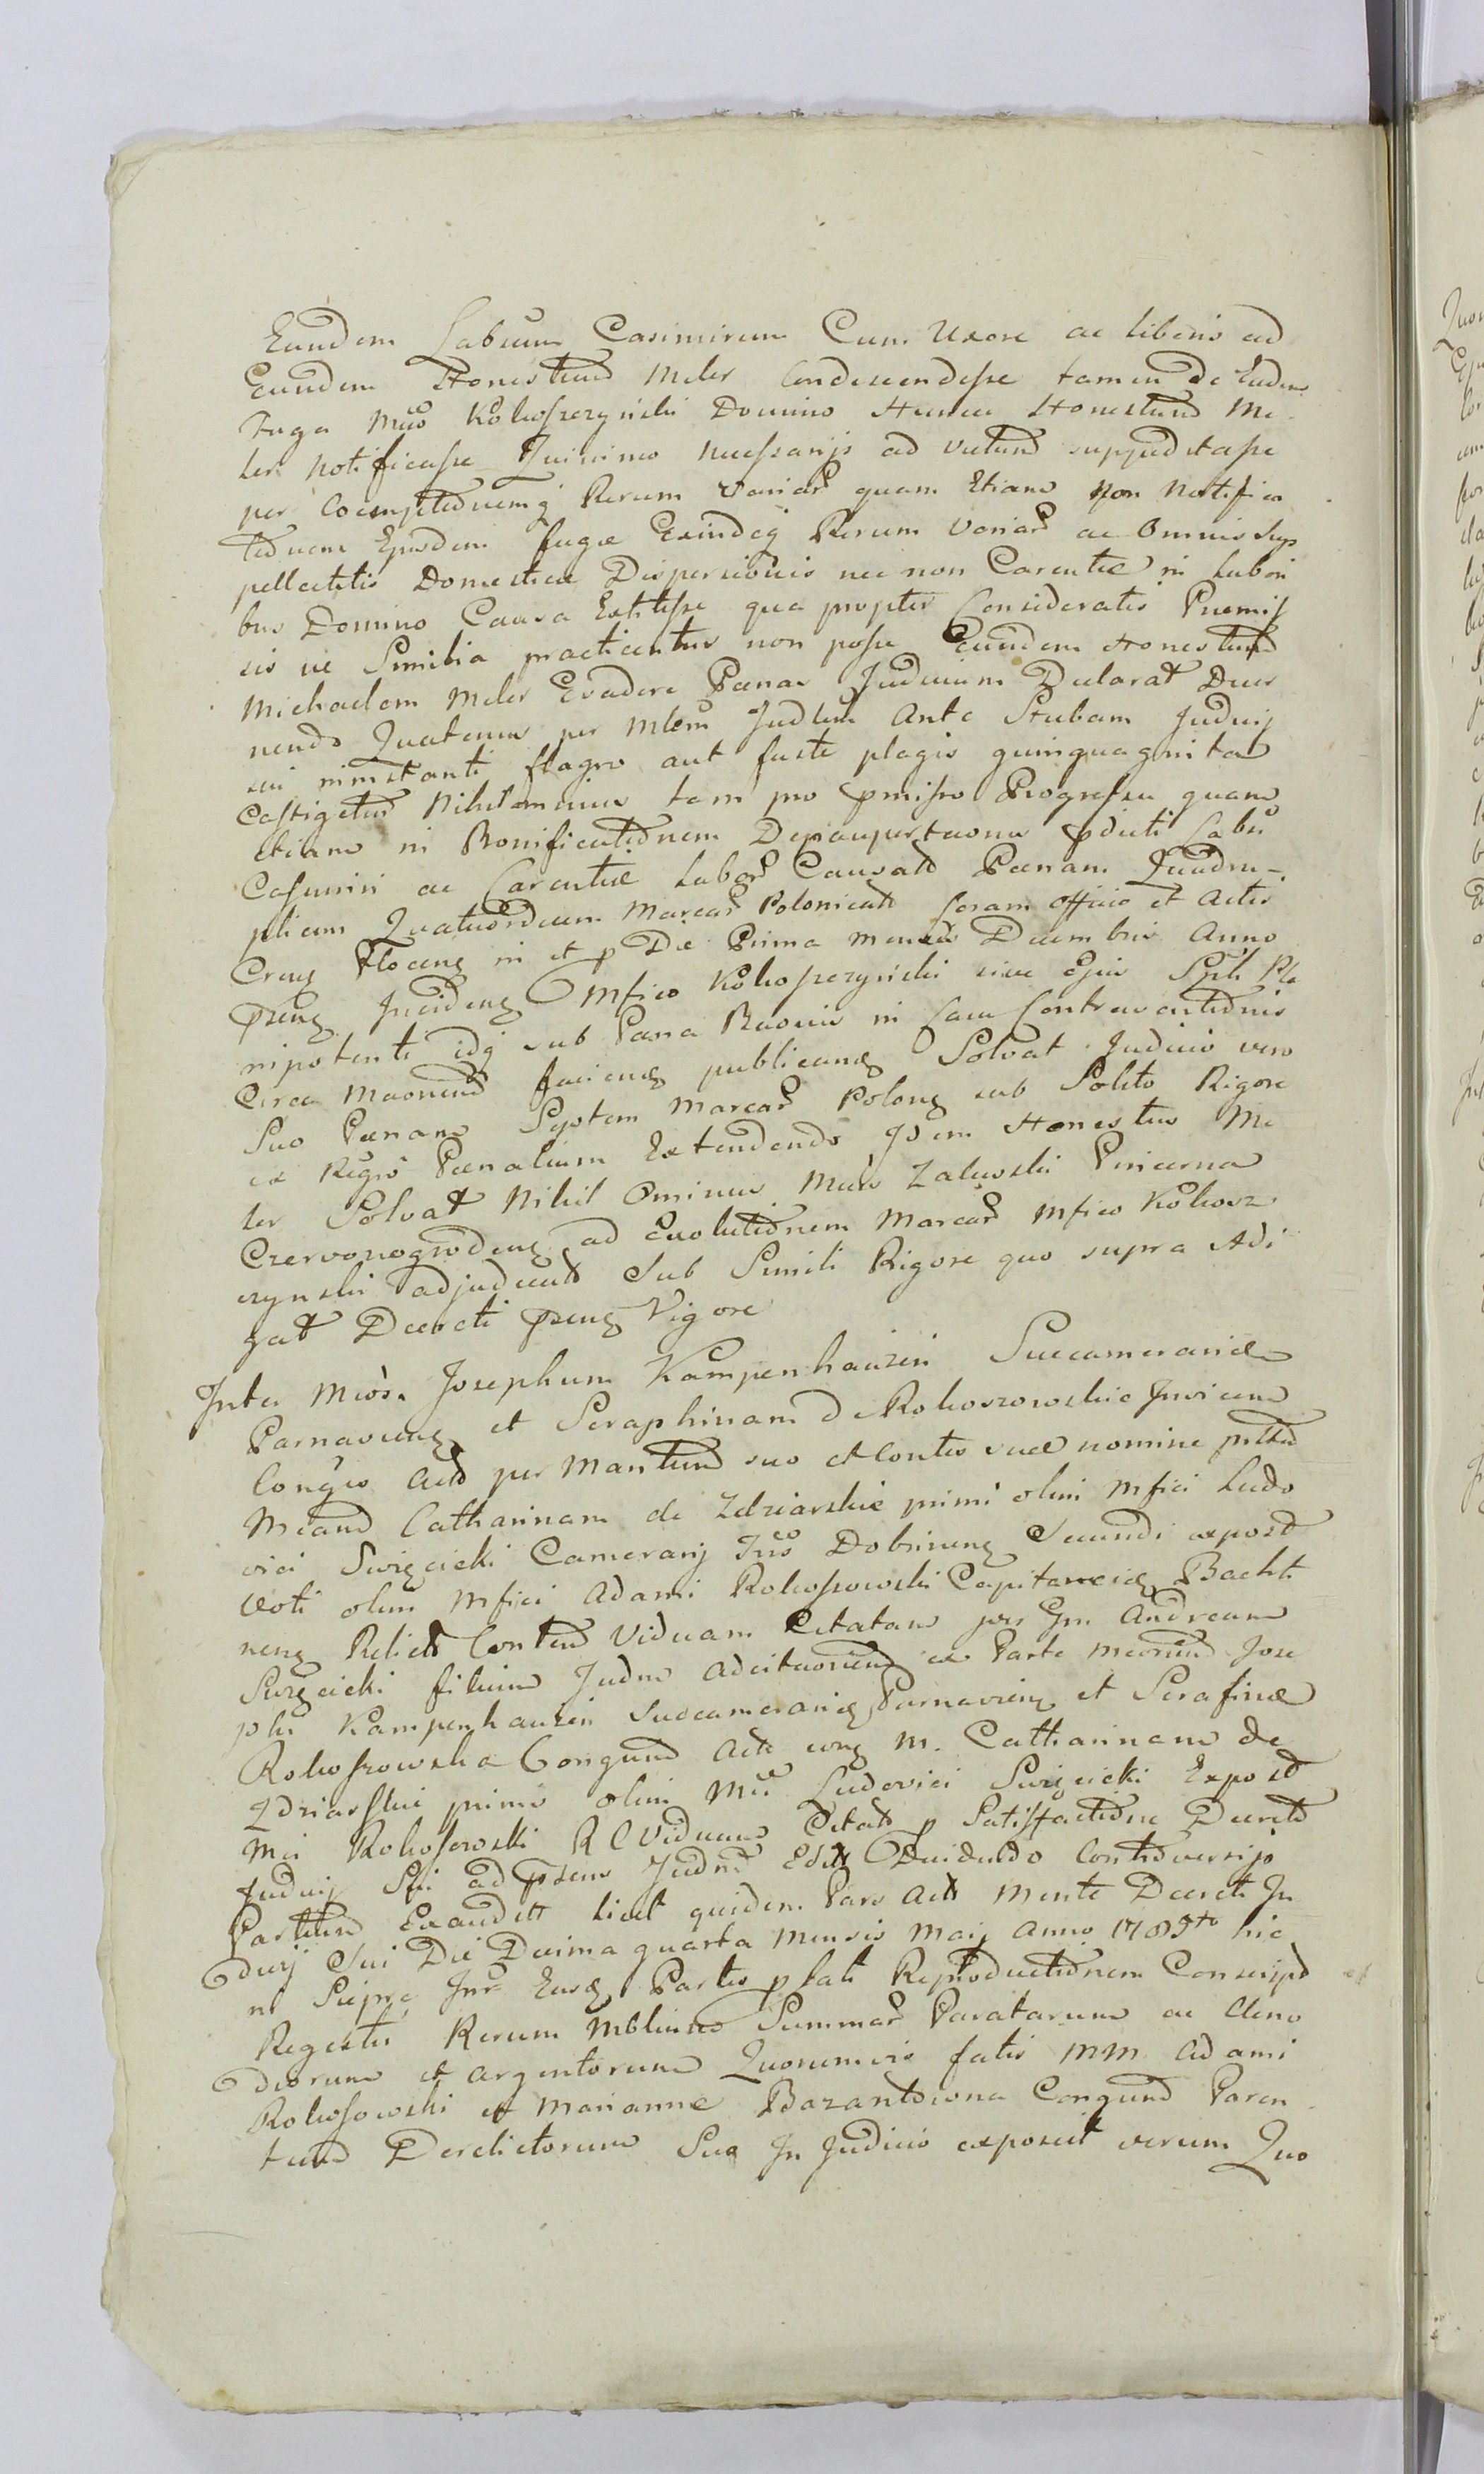 Eundem Labuum Casimirum Cum Uxore ac liberis ad
Eundem Honestum Meler Condescendisse tamen de Eadem
Fuga Mco Kokoszczynski Domino Hunce Honestum Me-
ler notificasse Quinimo necessarijs ad victum suppeditasse
per Coemptionemq Rerum variar quam Etiam Non Notifica
tionem Ejusdem fugæ Exindeq Rerum variar ac Omnis Sup
pellectitis Domesticæ Dispersionis nec non Carentiæ in Labori
bus Domino Causa Extitisse qua propter Consideratis Præmis
sis ne Similia practicentur non posse Eundem Honestum
Michaelem Meler Evadere Pænas Judicium Declarat Decer
nendo Quatenus per Mlem Judlem Ante Stubam Judicij
sui ninstanti flagro aut fuste plagis quinquaginta
Castigetur Nihilominus tam pro pmisso Progressu quam
etiam in Bonificationem Depaupertaonis pdicti Labu
Casimiri ac Carentiæ Labor Causat Pænam Quadru-
plicem Quatuordecim Marcar Polonical Coram Officio et Actis
Creng Plocens in et p Die Prima mensis Decembris Anno
psens Inciden Mfico Kokoszczynski sive Ejus Splt Ple
nipotenti idq sub Pæna Baonis in Casu Contraventionis
Circa Maonend faciens publicans Solvat Judicio vero
Suo Pænam Septem Marcar Polons sub Solito Rigore
ex Regro Pænalium Extendendo Idem Honestus Me
ler Solvat Nihil Ominus Mcus Zalewski Pincerna
Czervonogrodens ad Evolutionem Marcar Mfico Kokosz
czynski adjudicat Sub Simili Rigore quo supra Adi
gat Decreti psens Vigore
Inter Mcos Josephum Kampenhauzin Succamerariæ
Parnaviens et Seraphinam de Rokoszowskie Invicem
Conges Act per Maritum suo et Contis suæ nomine
Mcam Catharinam de Zdziarskie primi olim Mfici Ludo
vici Święcicki Camerarij Trs Dobrinens Secundi expost
Voti olim Mfici Adami Rokossowski Capitaneid Bachti
nens Relict Contem Viduam Citatam per Gm Andream
Święcicki filium Judm Adcitaoriens ex Parte Mcorum Jose
phi Kampenhauzin Succamerarid Parnaviens et Serafinæ
Rokoszowska Congum Act cong M. Catharinam de
Zdziarskie primo olim Mci Ludovici Święcicki Expost
Mci Rokosowski R C Viduam Citat p Satisfactione Decret
Judicij Sui ad psens Judm Edit Deducto Controversijs
Partium Exaudit licet quidem Pars Act Mente Decreti Ju
dicij Sui Die Decima quarta Mensis Maij Anno 1785to hic
in Sierpc Inr Easd Partes p lati Reproductionem Conscript
Regestri Rerum Mblium Summar Paratarum ac Cleno
diorum et argentorum Quorumvis fatis MM Adami
Rokosowski et Marianne Bazantowna Congum Paren
tum Derelictorum Suæ In Judicio exposuit verum Quo